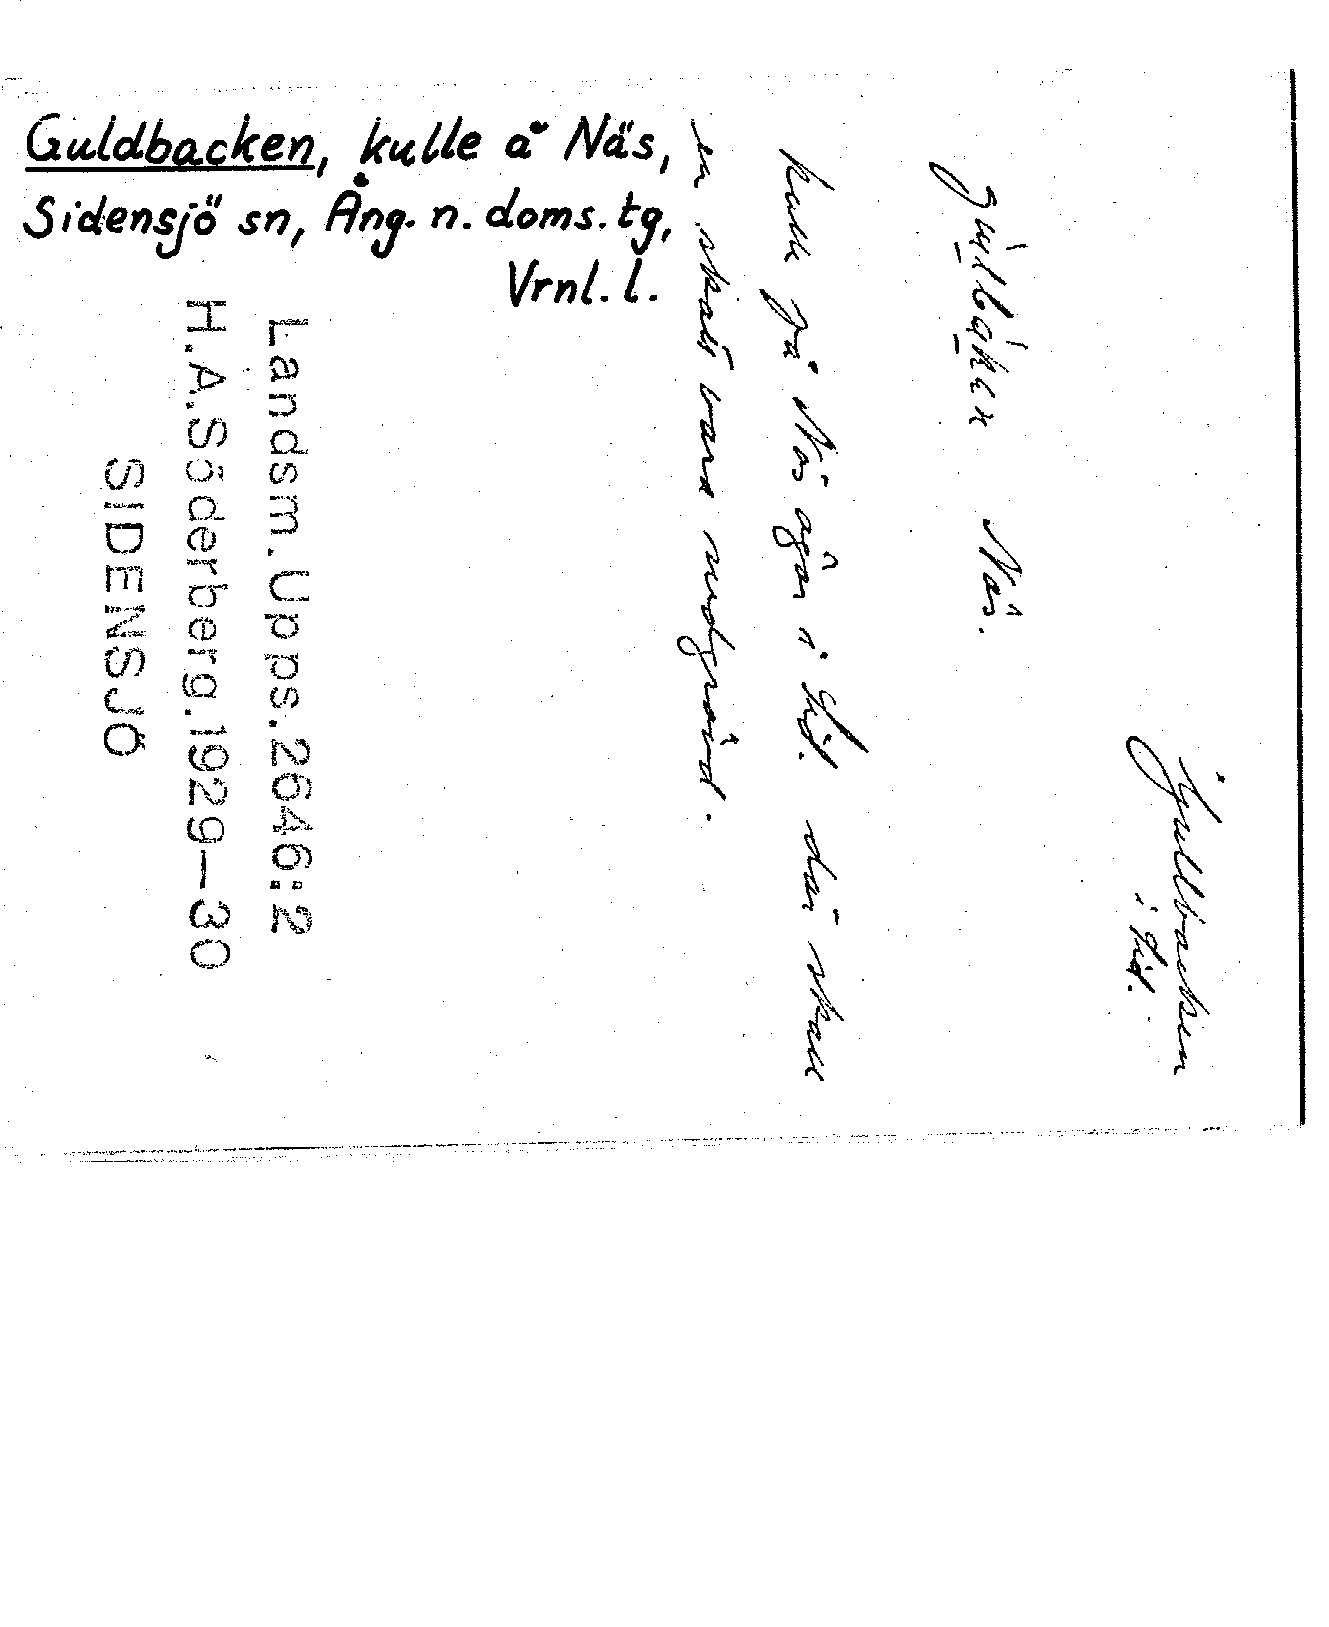 Guldbacken, kulle å Näs,
Sidensjö sn, Ång. n. doms. tg,
Vrnl. l.
Gullbacken
gulbakεn Näs.
kulle på Näs ägor i där skall
en skatt vara nedgrävd.
Landsm. Upps. 2646:2
H.A.Söderberg. 1929–30
SIDENSJÖ